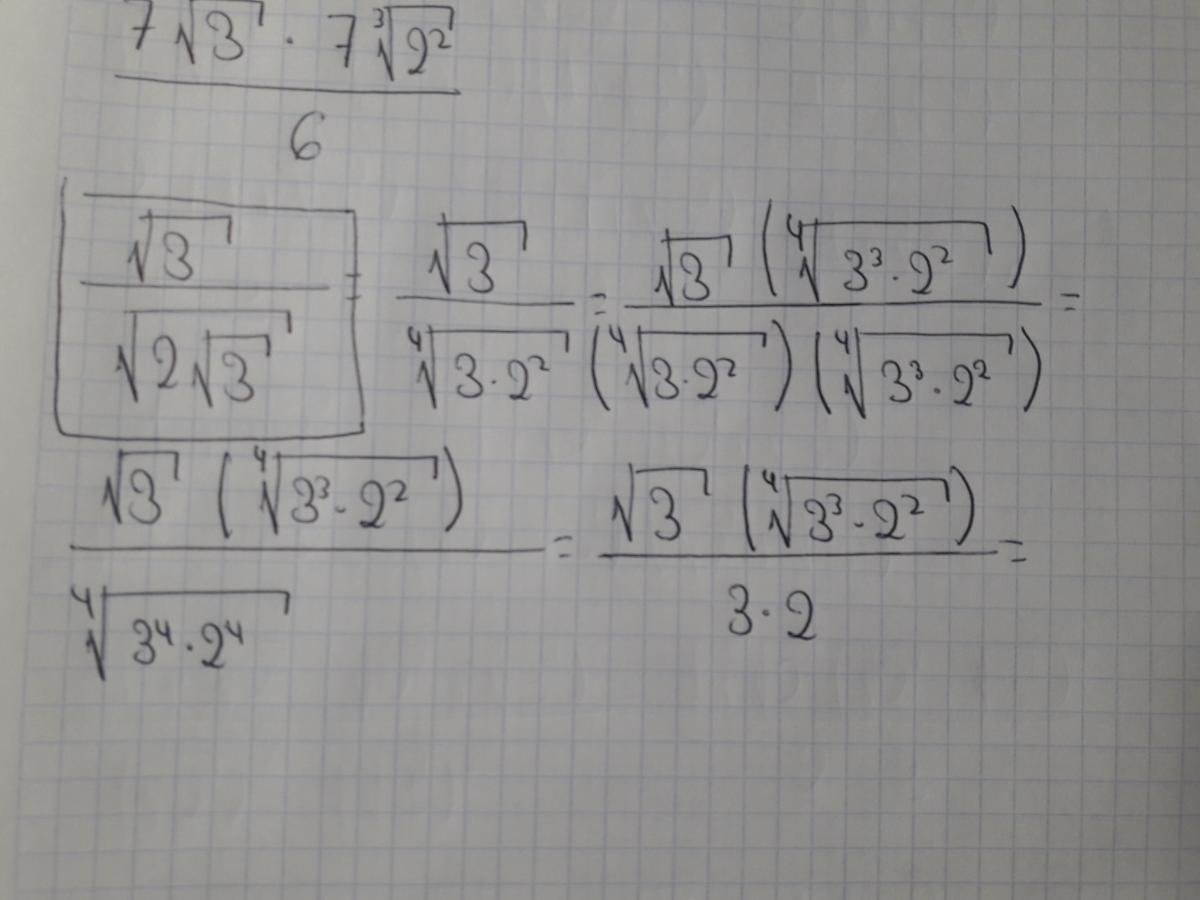 7√3 · 7∛2²
6
√3 / √(2√3) = √3 / ∜(3·2²) = √3 (∜(3³·2²)) / (∜(3·2²)) (∜(3³·2²)) =
√3 (∜(3³·2²)) / ∜(3⁴·2⁴) = √3 (∜(3³·2²)) / 3·2 =